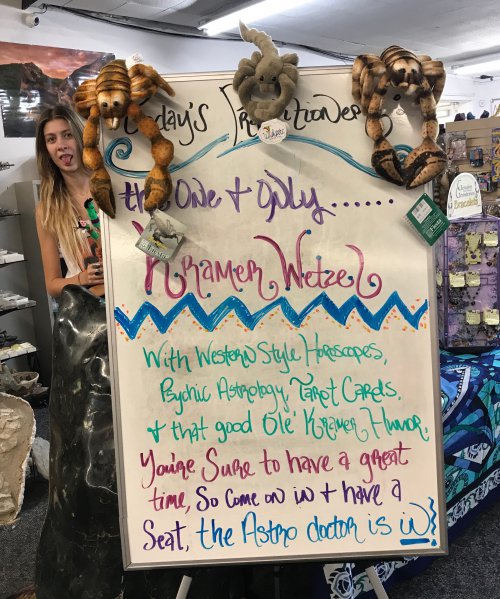 Today's Practitioner
the One & Only......
Kramer Wetzel
With Western Style Horoscopes,
Psychic Astrology, Tarot Cards.
& that good Ole' Kramer Humor.
You're Sure to have a great
time, So Come on in & have a
Seat, the Astro doctor is in!
Bracelets